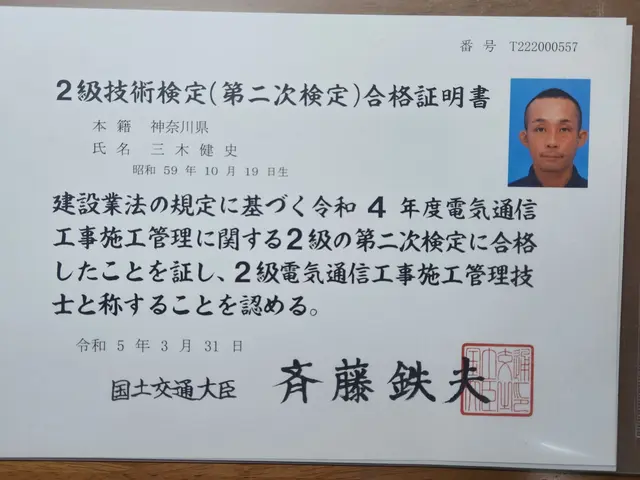 番号 T222000557
2級技術検定(第二次検定)合格証明書
本籍 神奈川県
氏名 三木健史
昭和 59 年 10 月 19 日生
建設業法の規定に基づく令和 4 年度電気通信
工事施工管理に関する2級の第二次検定に合格
したことを証し、2級電気通信工事施工管理技
士と称することを認める。
令和 5 年 3 月 31 日
国土交通大臣 斉藤鉄夫